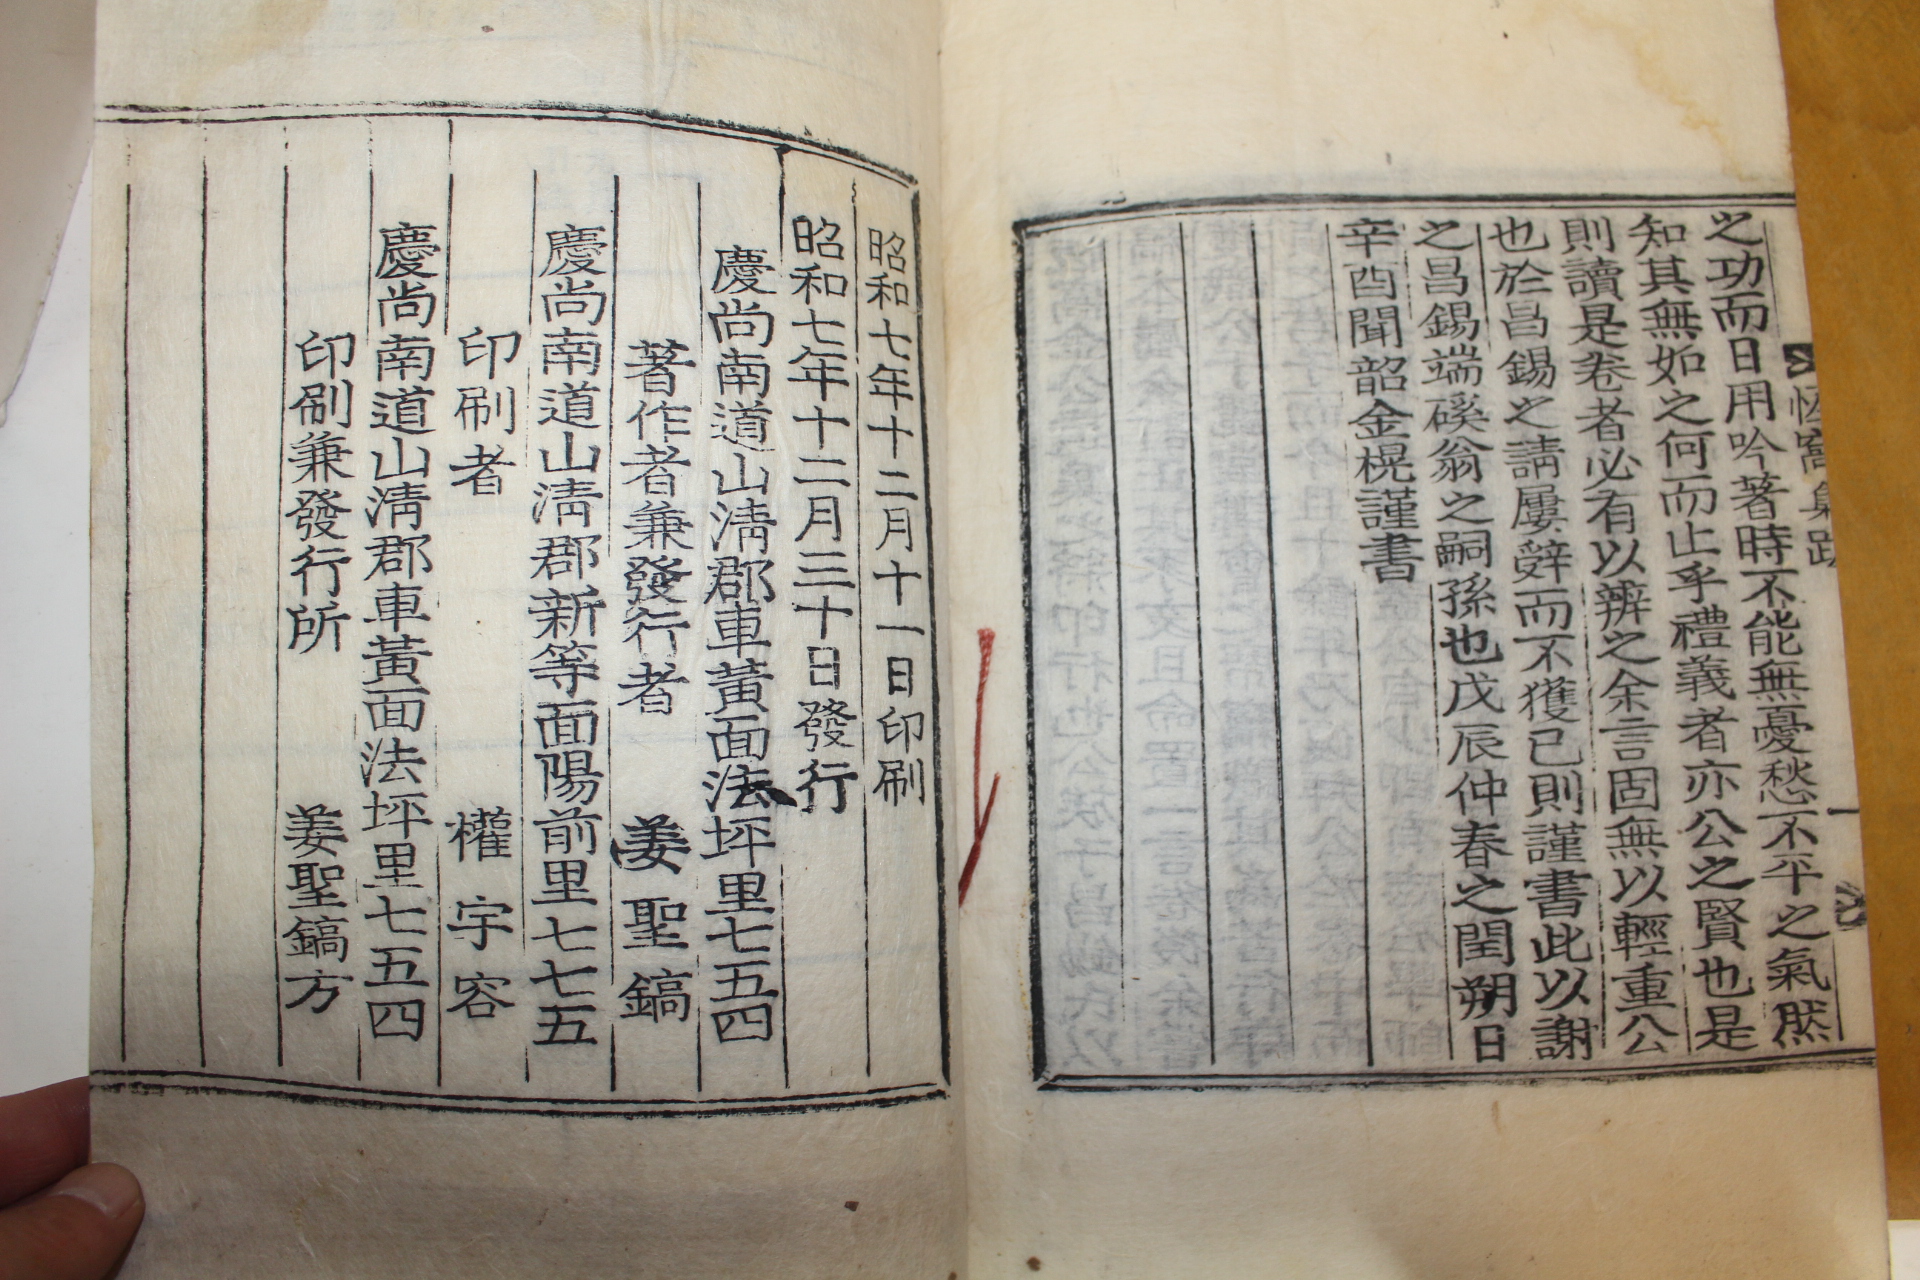 恒窩集跋
之功而日用吟著時不能無憂愁不平之氣然
知其無如之何而止乎禮義者亦公之賢也是
則讀是卷者必有以辨之余言固無以輕重公
也於昌錫之請屢辭而不獲已則謹書此以謝
之昌錫端磎翁之嗣孫也戊辰仲春之閏朔日
辛酉聞韶金榥謹書
昭和七年十二月十一日印刷
昭和七年十二月三十日發行
慶尚南道山淸郡車黃面法坪里七五四
著作者兼發行者 姜聖鎬
慶尚南道山淸郡新等面陽前里七七五
印刷者 權宇容
慶尚南道山淸郡車黃面法坪里七五四
印刷兼發行所 姜聖鎬方